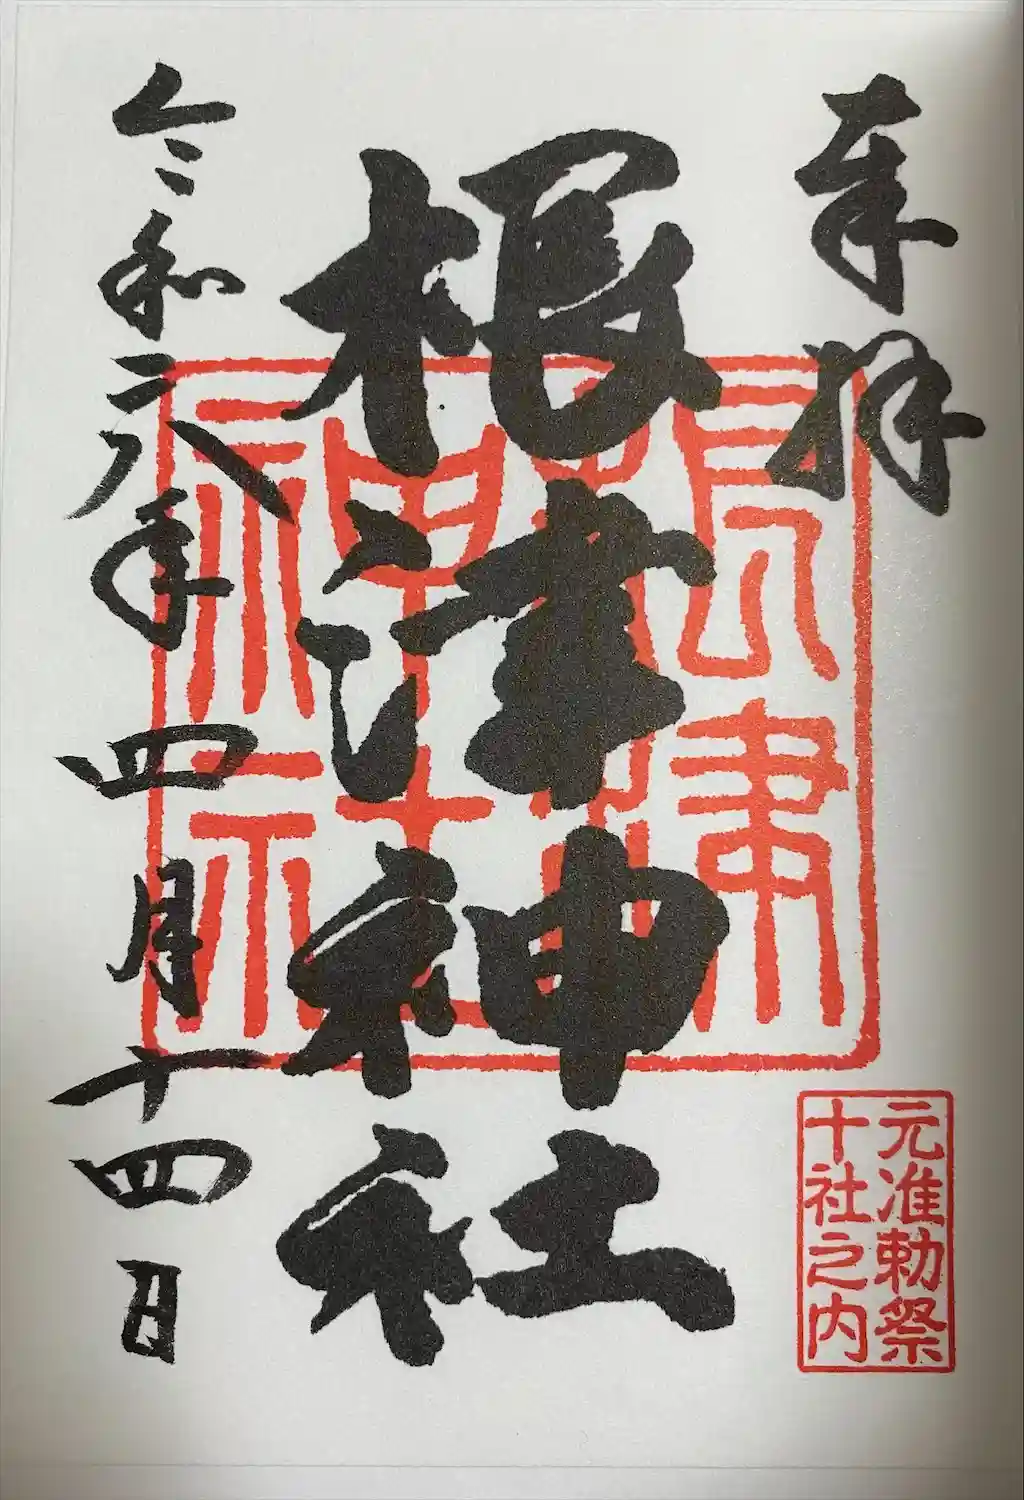 奉拝
根津神社
根津神社
元准勅祭
十社之内
令和六年四月十四日